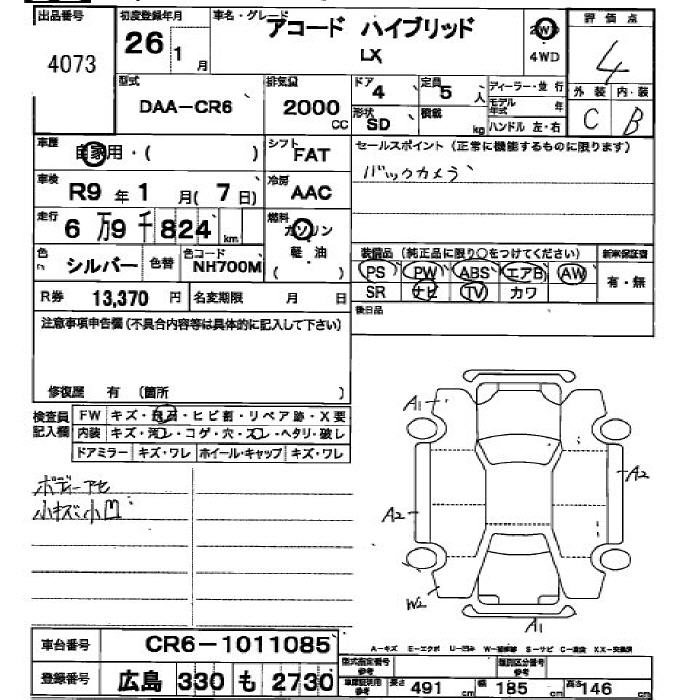 出品番号
4073
初度登録年月
26 1 月
車名・グレード
アコード ハイブリッド
LX
2WD
4WD
評価点
4
外装 内・装
C B
型式
DAA-CR6
排気量
2000 CC
ドア
4
定員
5 人
形状
SD
積載
kg
ディーラー・並行
モデル年式 年
ハンドル 左・右
車歴
自家用・( )
シフト
FAT
車検
R9 年 1 月( 7 日)
冷房
AAC
走行
6 万 9 千 824 km
燃料
ガソリン
軽・油
( )
色
シルバー
色替
色コード
NH700M
R券 13,370 円
名変期限 月 日
セールスポイント(正常に機能するものに限ります)
バックカメラ
装備品(純正品に限り○をつけてください)
新車保証書
PS PW ABS エアB AW
SR ナビ TV カワ
有・無
後日品
注意事項申告欄(不具合内容等は具体的に記入して下さい)
修復歴 有 (箇所 )
検査員
記入欄
FW キズ・飛石・ヒビ割・リペア跡・X要
内装 キズ・汚レ・コゲ・穴・スレ・ヘタリ・破レ
ドアミラー キズ・ワレ ホイール・キャップ キズ・ワレ
ボデーアセ
小キズ小凹
A1
A2
A2
W2
A1
車台番号 CR6-1011085
登録番号 広島 330 も 2730
A-キズ E-エクボ U-凹み S-サビ
型式指定番号
参考
類別区分番号
参考
長さ 491 cm
幅 185 cm
高さ 146 cm